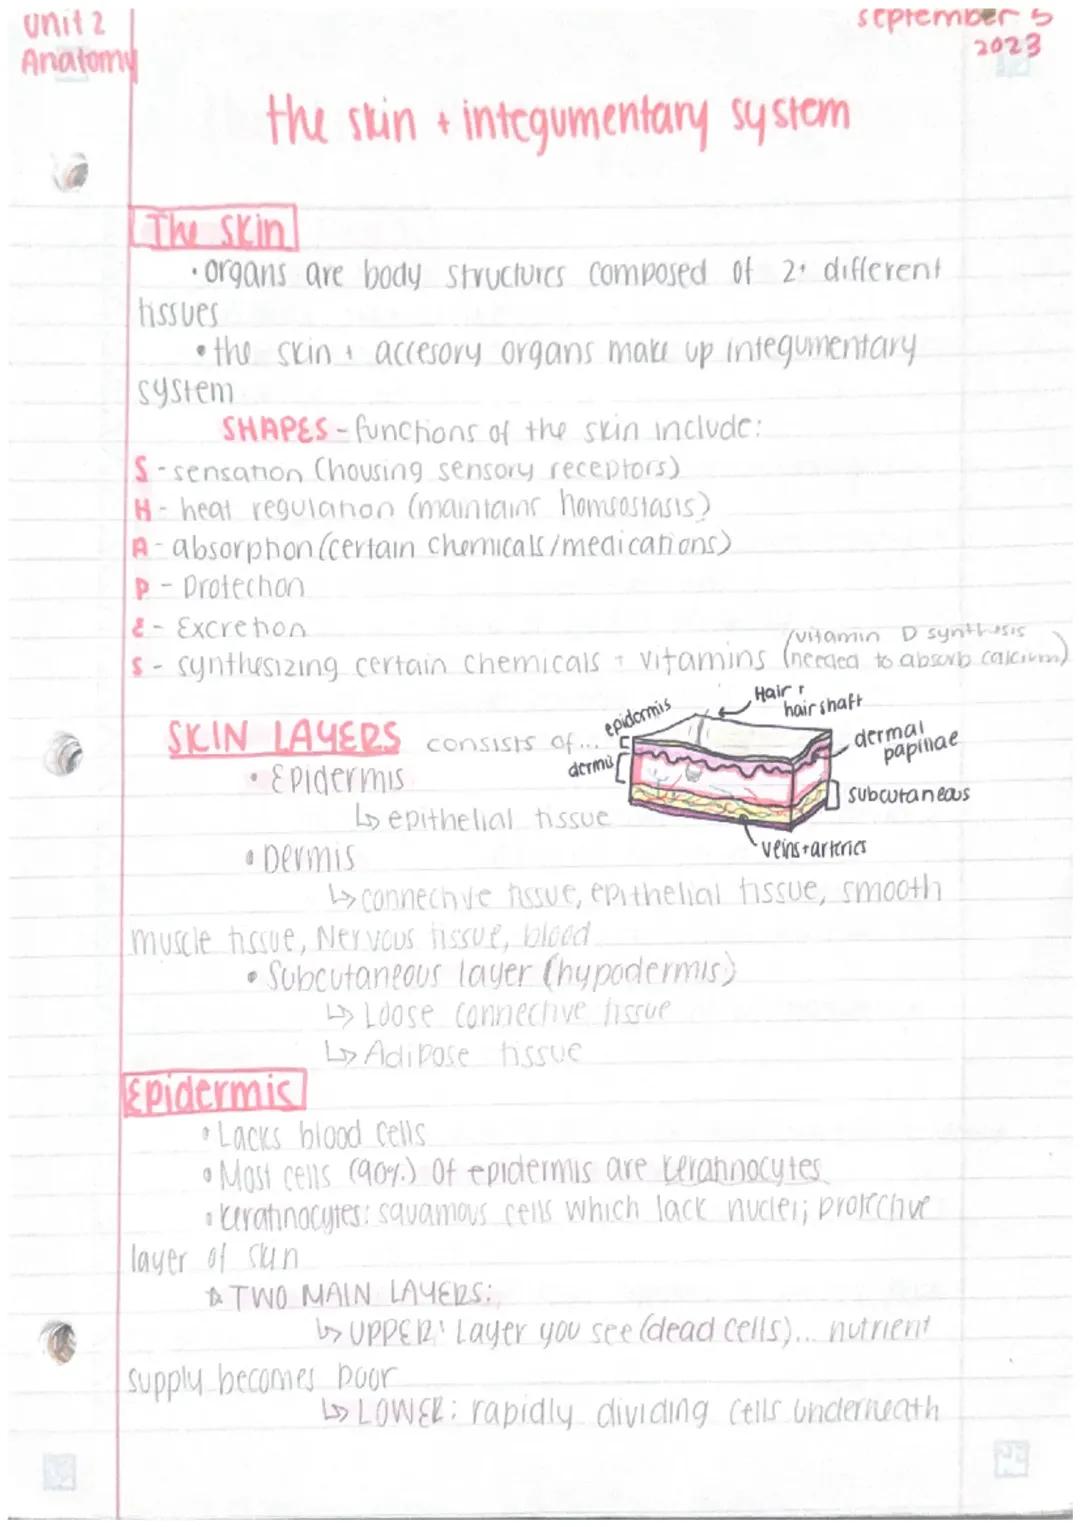 Unit 2
Anatomy
September 5
2023
the skin + integumentary system
The Skin
• organs are body structures composed of 2+ different
tissues
• the skin + accesory organs make up integumentary
system
SHAPES - functions of the skin include:
S - sensation (housing sensory receptors)
H - heat regulation (maintains homeostasis)
A - absorption (certain chemicals/medications)
P - Protection
E - Excretion
(vitamin D synthesis
S - synthesizing certain chemicals + vitamins (needed to absorb calcium)
SKIN LAYERS consists of...
epidermis
Hair +
hair shaft
dermis
dermal
papillae
subcutaneous
veins + arteries
• Epidermis
↳ epithelial tissue
• Dermis
↳ connective tissue, epithelial tissue, smooth
muscle tissue, Nervous tissue, blood
• Subcutaneous layer (hypodermis)
↳ Loose connective tissue
↳ Adipose tissue
Epidermis
• Lacks blood cells
• Most cells (90%) of epidermis are keratinocytes
• keratinocytes: squamous cells which lack nuclei; protective
layer of skin
☆ TWO MAIN LAYERS:
↳ UPPER: Layer you see (dead cells)... nutrient
supply becomes poor
↳ LOWER: rapidly dividing cells underneath